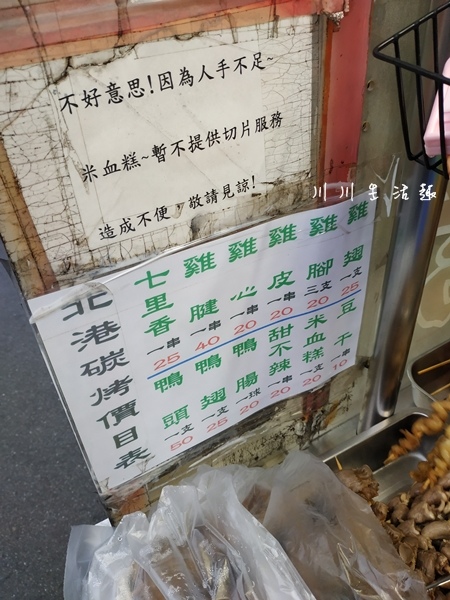 不好意思!因為人手不足~
米血糕~暫不提供切片服務
造成不便,敬請見諒!
川川生活趣
北港碳烤價目表
七里香 一串 25
雞腱 一串 40
雞心 一串 20
雞皮 一串 20
雞腳 三支 20
雞翅 一支 25
鴨頭 一支 50
鴨翅 一支 25
鴨腸 一球 20
甜不辣 一串 20
米血糕 一支 20
豆干 一串 10